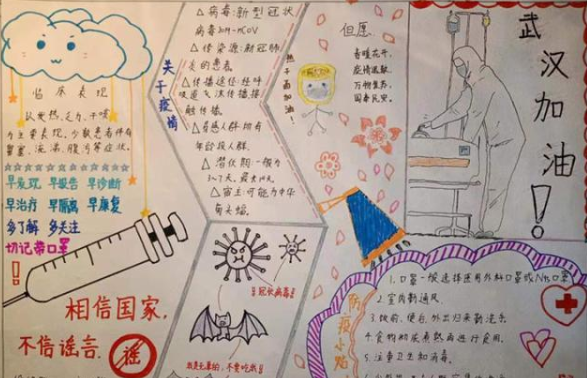 临床表现
以发热、乏力、干咳
为主要表现，少数患者伴有
鼻塞、流涕、腹泻等症状。
早发现 早报告 早诊断
早治疗 早隔离 早康复
多了解 多关注
切记带口罩
相信国家，
不信谣言。
谣
关于疫情
△病毒：新型冠状
病毒
△传染源：新冠肺
炎的患者。
△传播途径：经呼
吸道飞沫传播，接
触传播。
△易感人群：所有
年龄段人群。
△潜伏期：一般为
3~7天，最长14天。
△宿主：可能为中华
菊头蝠。
但愿
春暖花开，
疫情退散，
万物复苏，
国泰民安。
武汉加油！
防疫小
1.口罩一般选择医用外科口罩或N95口罩
2.室内勤通风
3.饭前、便后、外出归来勤洗手
5.注意卫生和消毒。